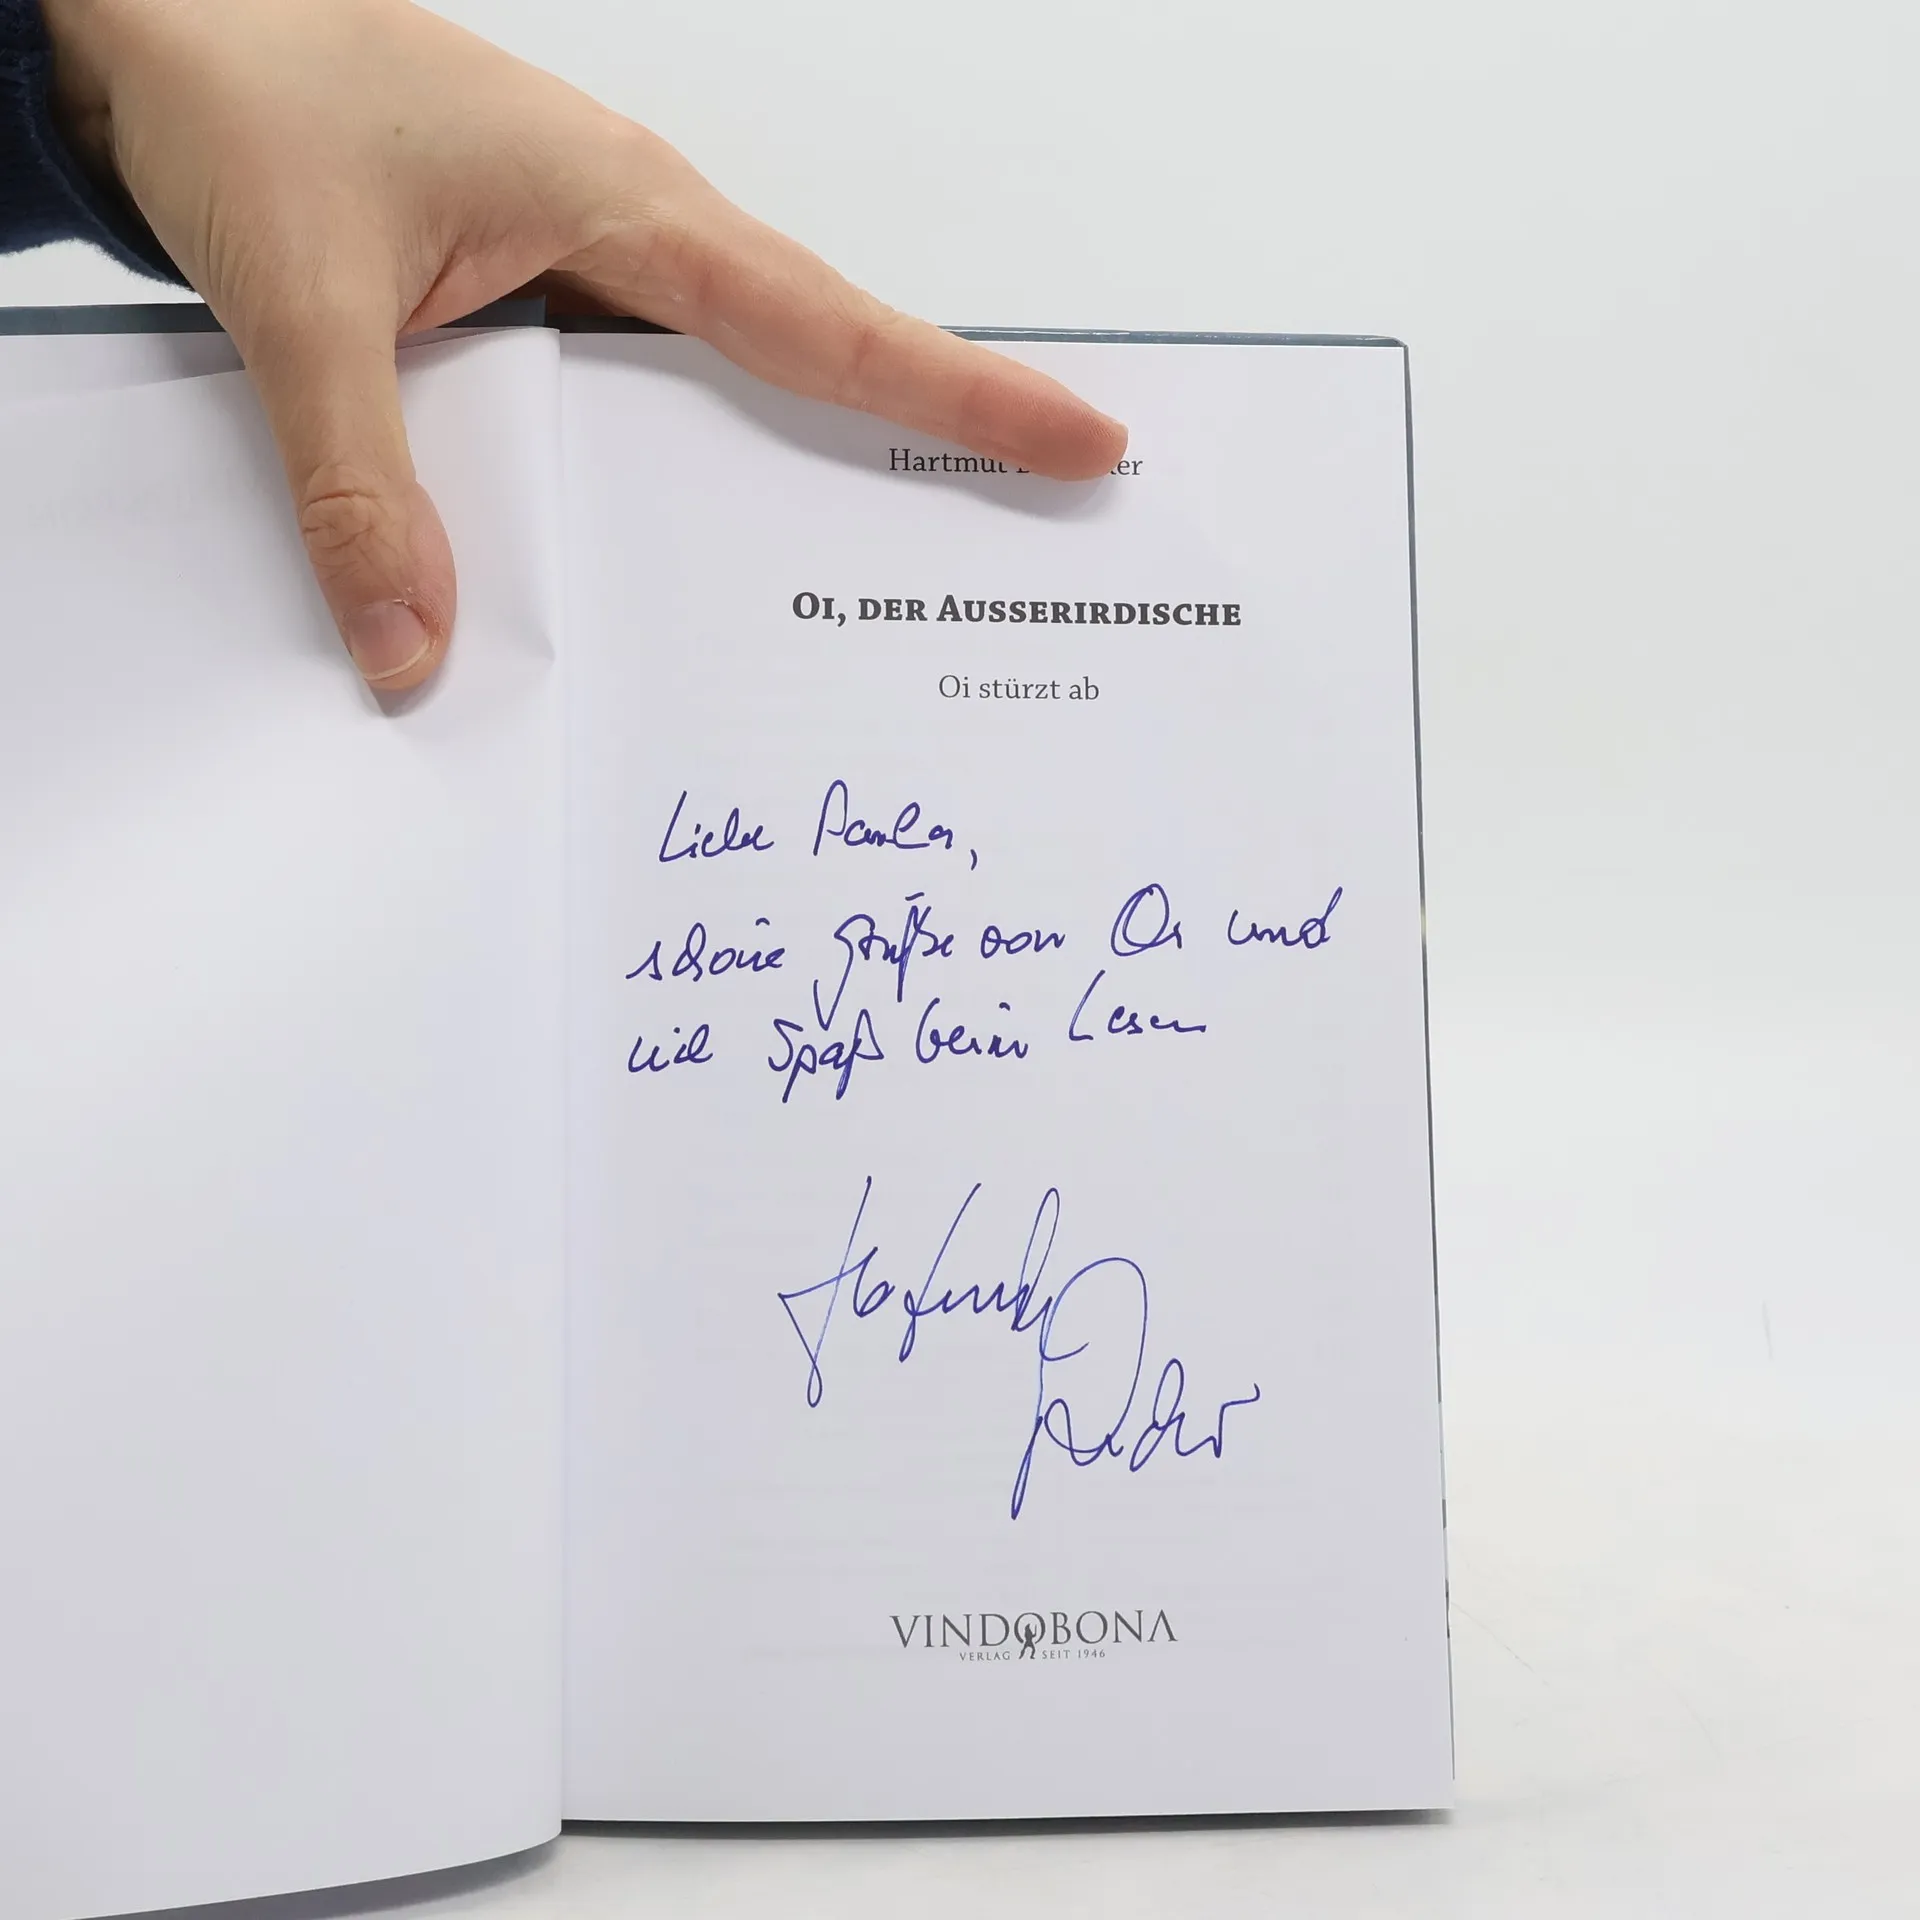 Hartmut
OI, DER AUSSERIRDISCHE
Oi stürzt ab
Liebe Paula,
schöne Grüße von Oi und
viel Spaß beim Lesen
Hartmut
VINDOBONA
VERLAG SEIT 1946